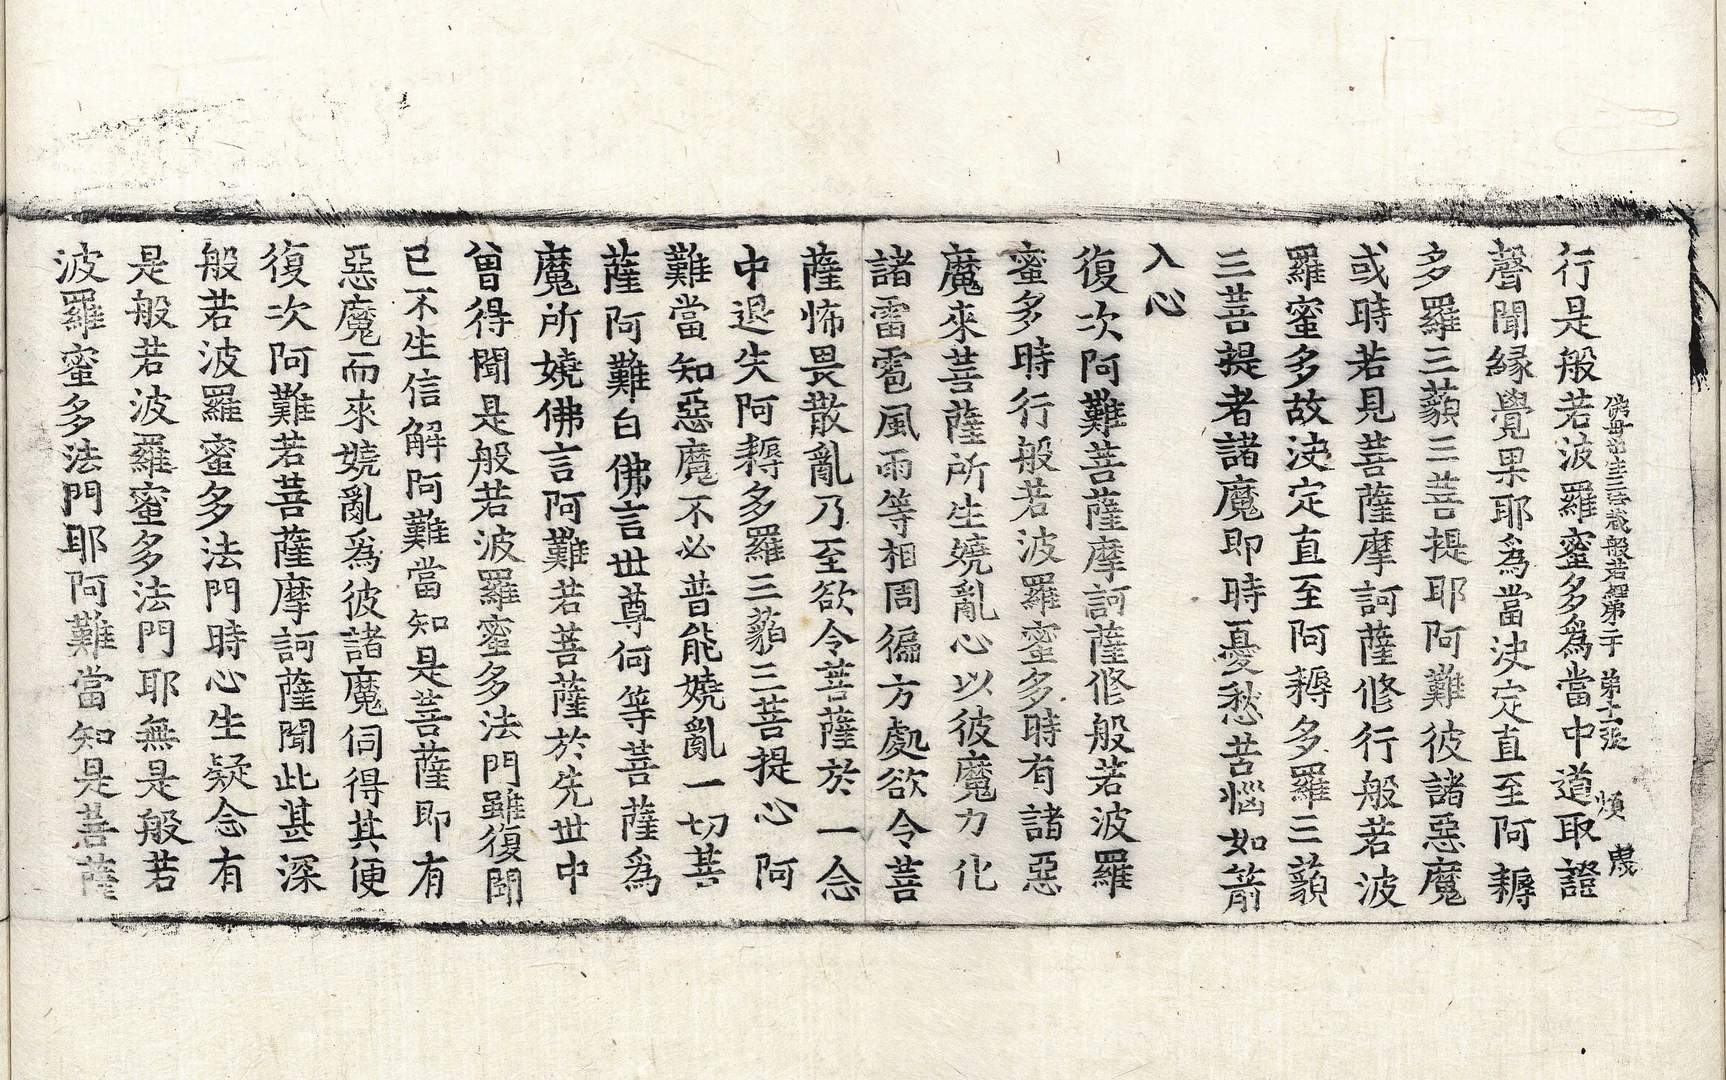 佛母出生三法藏般若經第二十 第十二張 煩 虔
行是般若波羅蜜多為當中道取證
聲聞緣覺果耶為當決定直至阿耨
多羅三藐三菩提耶阿難彼諸惡魔
或時若見菩薩摩訶薩修行般若波
羅蜜多故決定直至阿耨多羅三藐
三菩提者諸魔即時憂愁苦惱如箭
入心
復次阿難菩薩摩訶薩修般若波羅
蜜多時行般若波羅蜜多時有諸惡
魔來菩薩所生嬈亂心以彼魔力化
諸雷雹風雨等相周徧方處欲令菩
薩怖畏散亂乃至欲令菩薩於一念
中退失阿耨多羅三藐三菩提心阿
難當知惡魔不必普能嬈亂一切菩
薩阿難白佛言世尊何等菩薩為
魔所嬈佛言阿難若菩薩於先世中
曾得聞是般若波羅蜜多法門雖復聞
已不生信解阿難當知是菩薩即有
惡魔而來嬈亂為彼諸魔伺得其便
復次阿難若菩薩摩訶薩聞此甚深
般若波羅蜜多法門時心生疑念有
是般若波羅蜜多法門耶無是般若
波羅蜜多法門耶阿難當知是菩薩